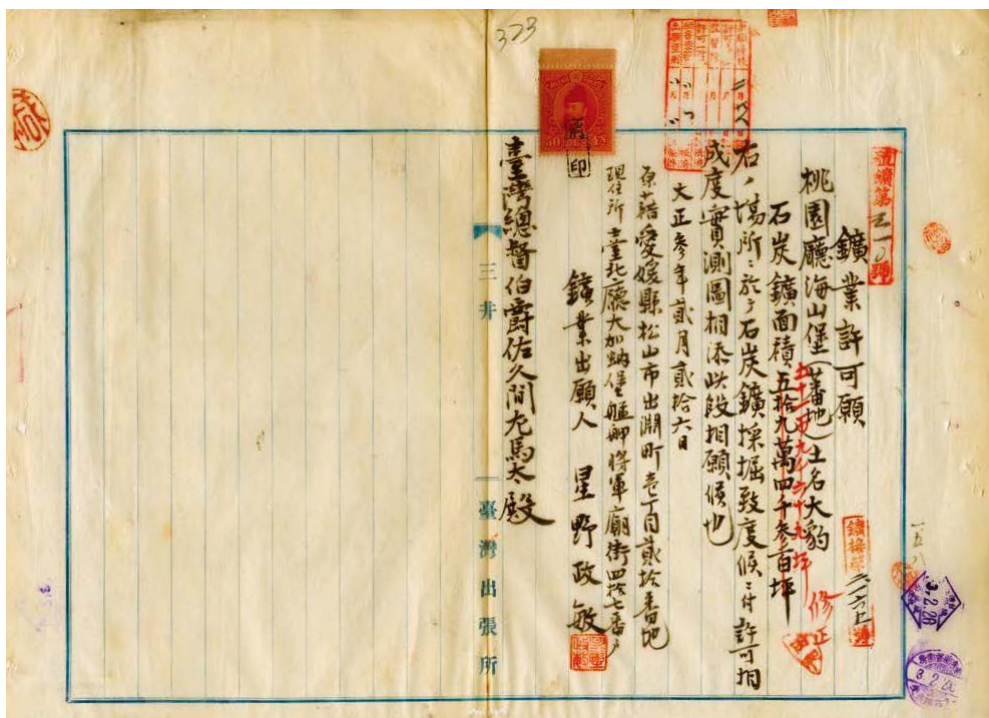 323
鑛業許可願
桃園廳海山堡(蕃地)土名大豹
石炭鑛面積五拾九萬四千参百坪
修正
右ノ場所ニ於テ石炭鑛採掘致度候ニ付許可相
成度實測圖相添此段相願候也
大正参年貳月貳拾六日
原籍愛媛縣松山市出淵町壱丁目貳拾番地
現住所臺北廳大加蚋堡艋舺將軍廟街四拾七番戶
鑛業出願人 星野政敏
印
臺灣總督伯爵佐久間左馬太殿
三井
臺灣出張所
3.2.26